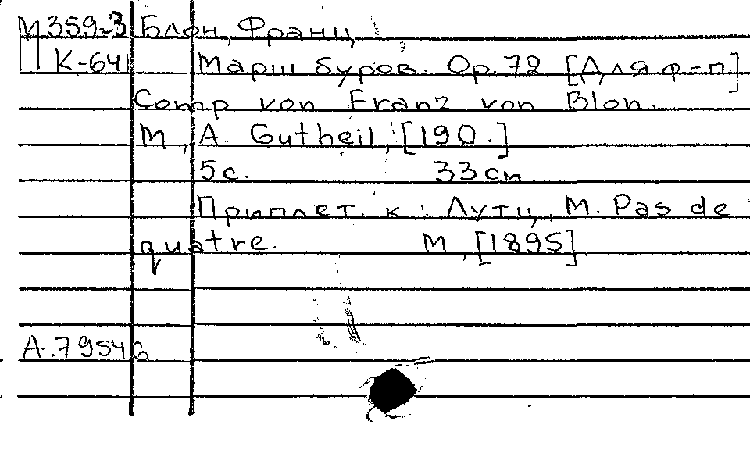 М359-3 Блон, Франц
К-641 Марш буров. Op. 72 [Для ф-п.]
Comp von Franz von Blon.
М, A. Gutheil, [190.]
5с. 33см
Приплет. к: Лутц, М. Pas de
quatre. М, [1895]
А.7954